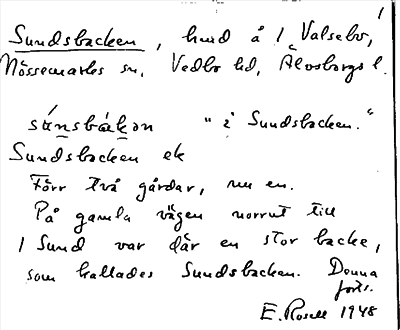 1
Sundsbacken, hmd å 1 Valsebo,
Nössemarks sn, Vedbo hd, Älvsborgs l.
súnsbàkən "i Sundsbacken."
Sundsbacken ek
Förr två gårdar, nu en.
På gamla vägen norrut till
1 Sund var där en stor backe,
som kallades Sundsbacken. Denna
forts.
E. Rosell 1948